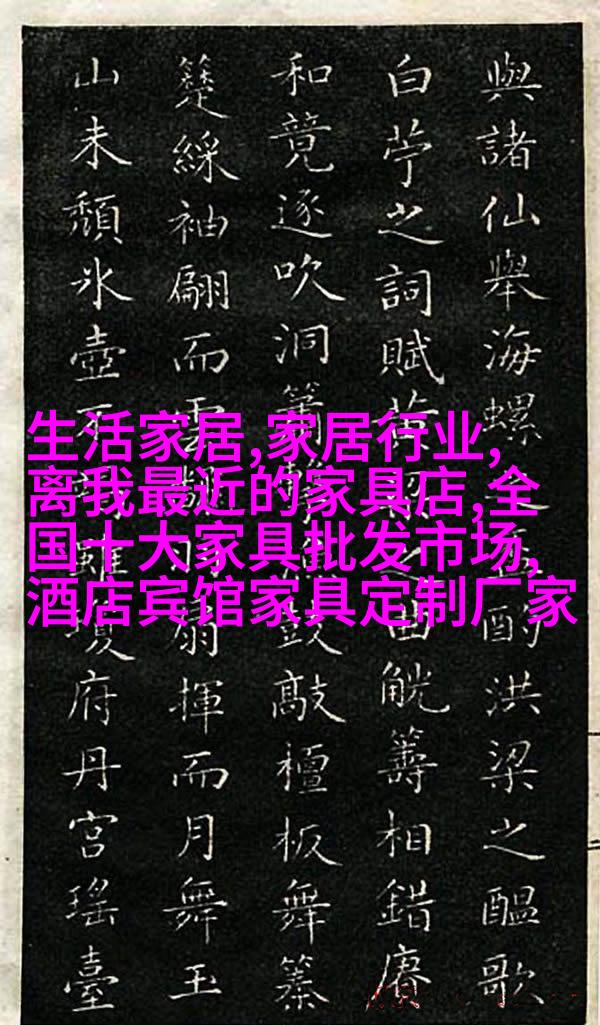 與諸仙舉海螺酌洪梁之醞歌
白苧之詞賦相錯賡
和逐吹洞簫鼓敲檀板舞
綵袖翩而雲扇揮而月舞玉
山未頹氷壺府丹宮瑤臺
生活家居,家居行业,
离我最近的家具店,全
国十大家具批发市场,
酒店宾馆家具定制厂家